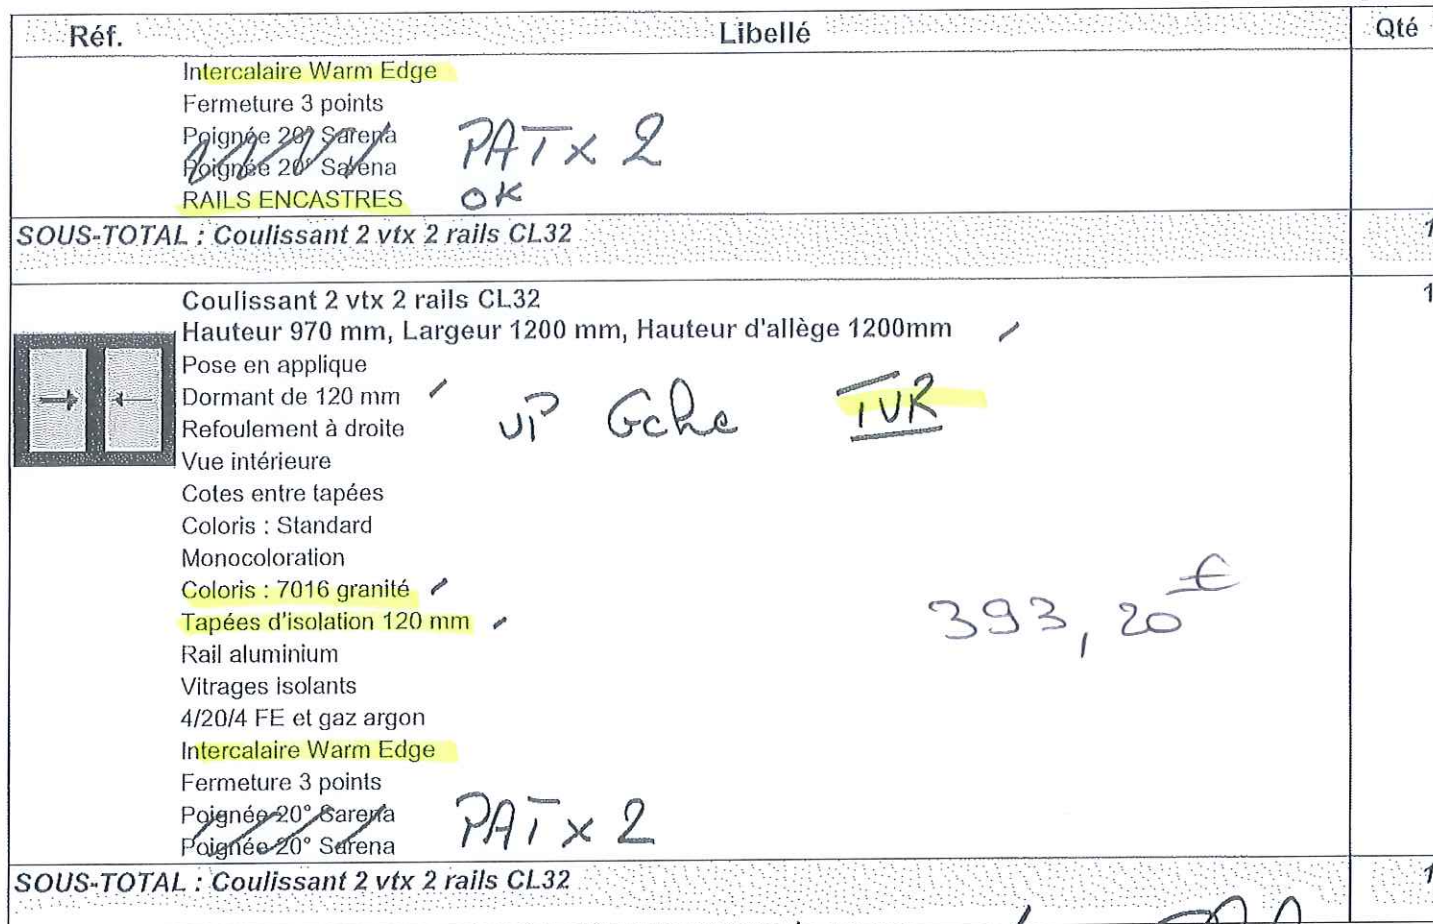 Réf. Libellé Qté
Intercalaire Warm Edge
Fermeture 3 points
Poignée 20° Sarena PAT x 2
Poignée 20° Sarena
RAILS ENCASTRES OK
SOUS-TOTAL : Coulissant 2 vtx 2 rails CL32 1
Coulissant 2 vtx 2 rails CL32 1
Hauteur 970 mm, Largeur 1200 mm, Hauteur d'allège 1200mm
Pose en applique
Dormant de 120 mm
VP Gche TVR
Refoulement à droite
Vue intérieure
Cotes entre tapées
Coloris : Standard
Monocoloration
Coloris : 7016 granité
393,20 €
Tapées d'isolation 120 mm
Rail aluminium
Vitrages isolants
4/20/4 FE et gaz argon
Intercalaire Warm Edge
Fermeture 3 points
Poignée 20° Sarena PAT x 2
Poignée 20° Sarena
SOUS-TOTAL : Coulissant 2 vtx 2 rails CL32 1